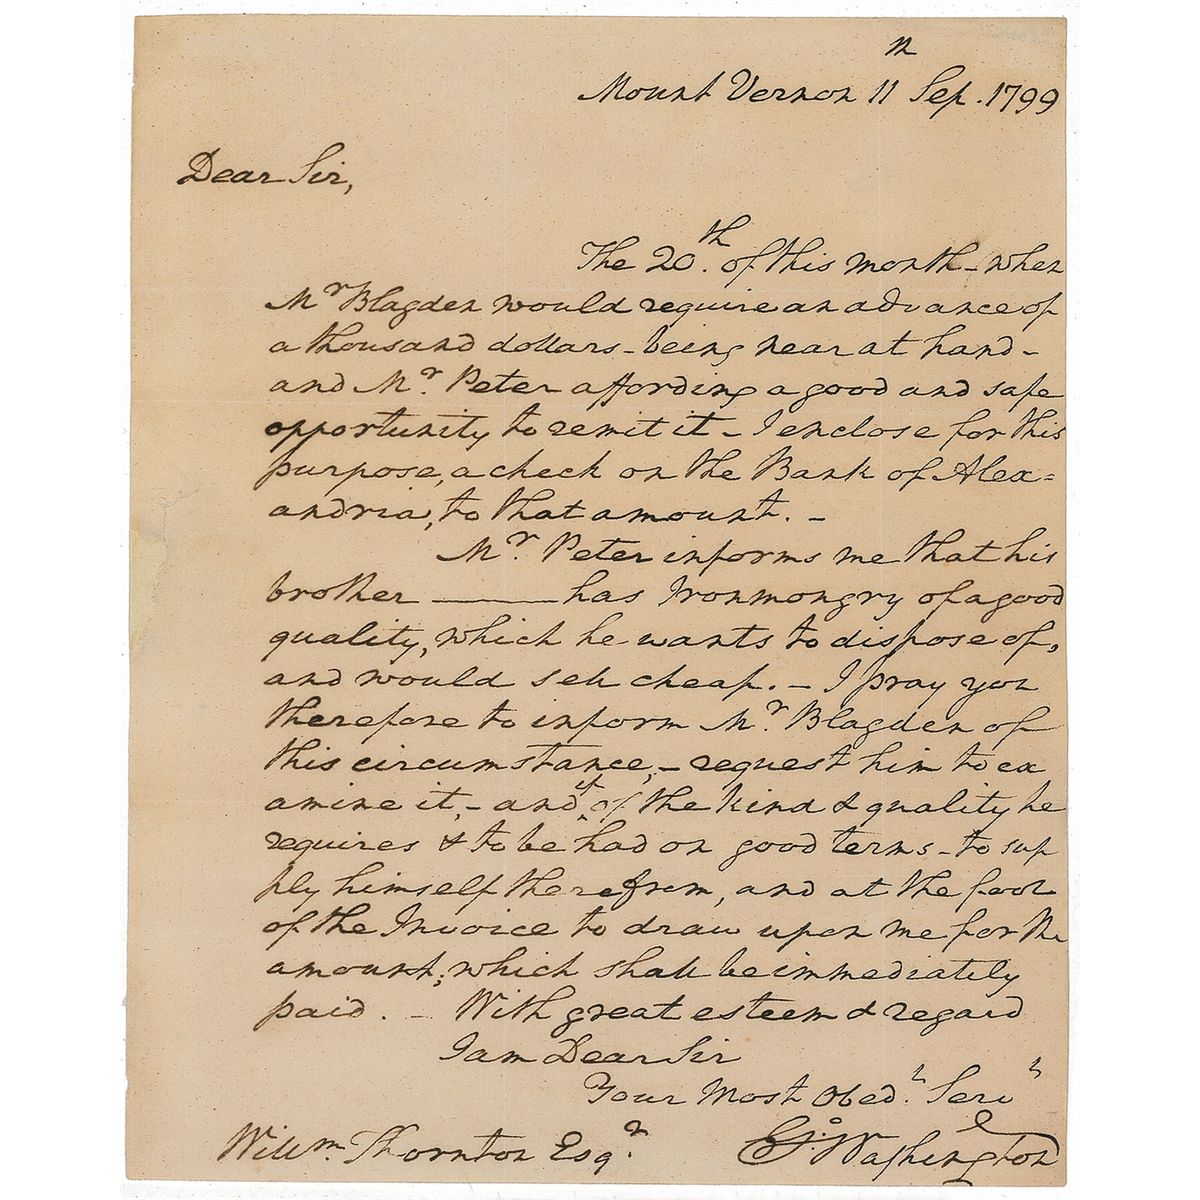 Mount Vernon 11th Sep. 1799
Dear Sir,
The 20th. of this month - when
Mr Blagden would require an advance of
a thousand dollars - being near at hand -
and Mr. Peter affording a good and safe
opportunity to remit it - I enclose for this
purpose, a check on the Bank of Alex-
andria, to that amount. -
Mr. Peter informs me that his
brother ——— has Ironmongry of a good
quality, which he wants to dispose of,
and would sell cheap. - I pray you
therefore to inform Mr. Blagden of
this circumstance, - request him to ex
amine it, - and if of the kind & quality he
requires & to be had on good terms - to sup
ply himself therefrom, and at the foot
of the Invoice to draw upon me for the
amount; which shall be immediately
paid. - With great esteem & regard
I am Dear Sir
Your Most Obedt. Servt
Go: Washington
Willm. Thornton Esqr.